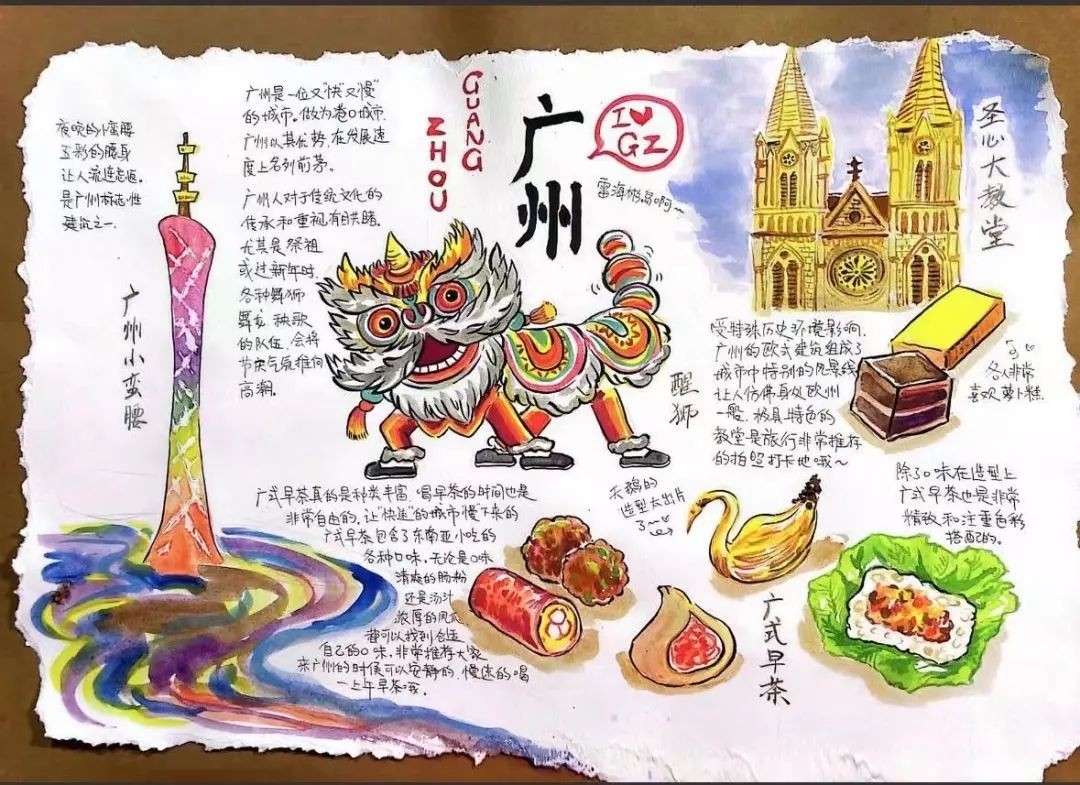 夜晚的小蛮腰
五彩的腰身
让人流连忘返.
是广州标志性
建筑之一.
广州小蛮腰
广州是一位又"快"又"慢"
的城市.做为港口城市
广州以其优势,在发展速
度上名列前茅.
广州人对于传统文化的
传承和重视,有目共睹.
尤其是祭祖
或过新年时.
各种舞狮
舞龙 秧歌
的队伍,会将
节庆气氛推向
高潮.
GUANG
ZHOU
广州
I♥
GZ
醒狮
圣心大教堂
受特殊历史环境影响.
广州的欧式建筑组成了
城市中特别的风景线
让人仿佛身处欧洲
一般.极具特色的
教堂是旅行非常推荐
的拍照打卡地哦～
名人非常
喜欢萝卜糕.
广式早茶真的是种类丰富.喝早茶的时间也是
非常自由的,让"快速"的城市"慢"下来的
广式早茶包含了东南亚小吃的
各种口味.无论是口味
清爽的肠粉
还是汤汁
浓厚的凤爪
都可以找到合适
自己的口味.非常推荐大家
来广州的时候可以安静的,慢速的喝
一上午早茶哦.
天鹅的
造型太出片
了～
广式早茶
除了口味在造型上
广式早茶也是非常
精致和注重色彩
搭配的.